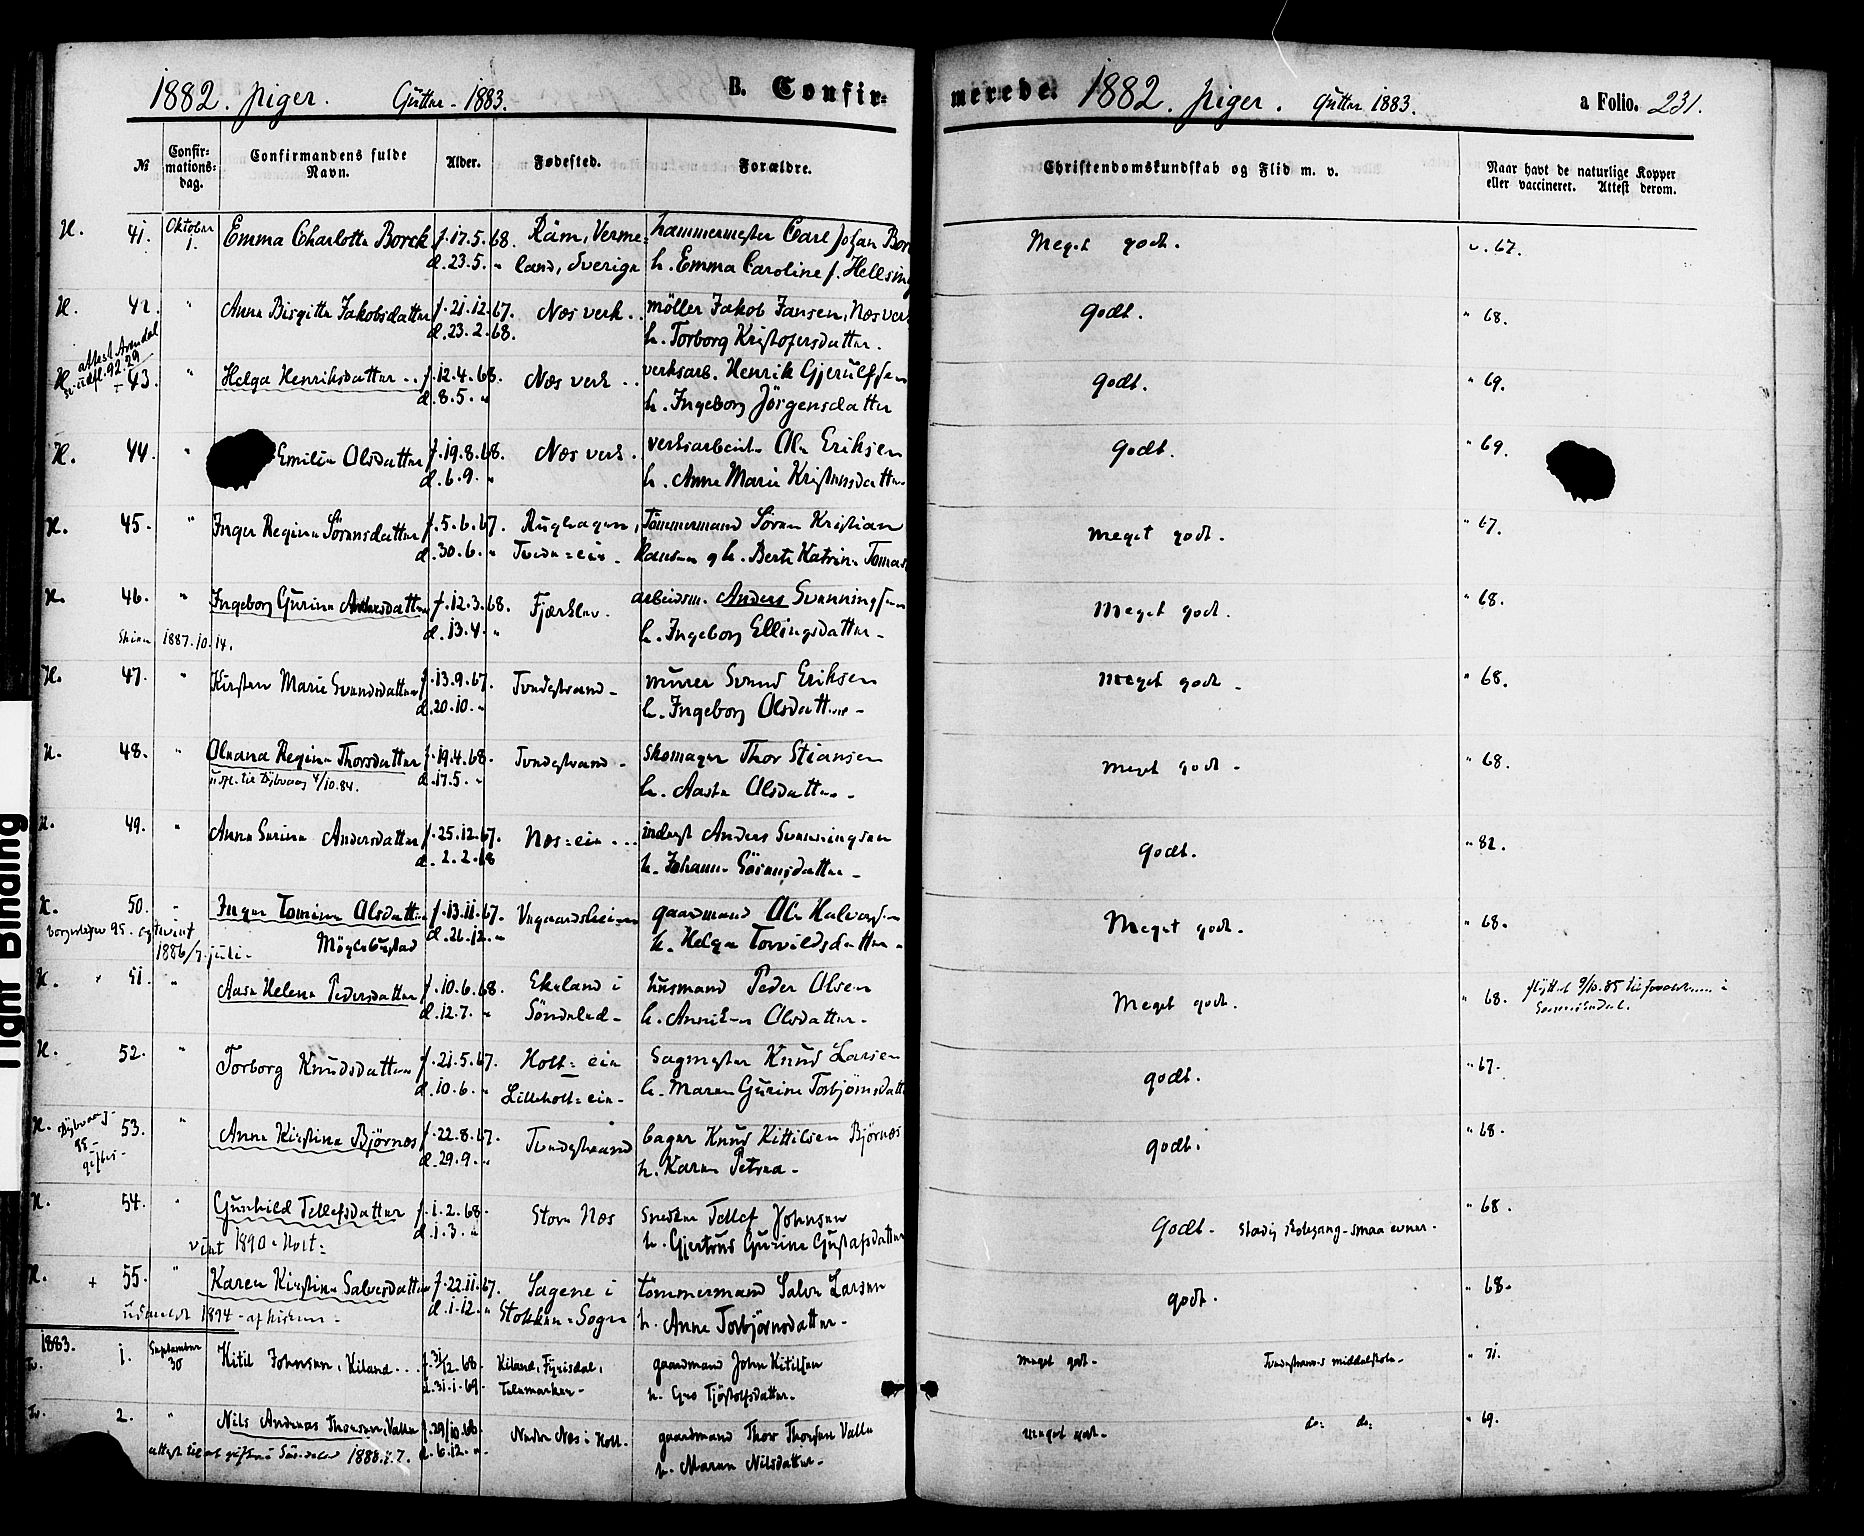 1882. piger. Gutter - 1883. B. Confir-
merede. 1882. piger. Gutter 1883. a Folio. 231.
№ Confir-mations-dag. Confirmandens fulde Navn. Alder. Fødested. Forældre. Christendomskundskab og Flid m. v. Naar havt de naturlige Kopper eller vaccineret. Attest derom.
H. 41. Oktober 1. Emma Charlotte Borck f. 17.5.68. Räm, Verme- hammermester Carl Johan Bor Meget godt. v. 67.
d. 23.5. " land, Sverige h. Emma Caroline f. Hellsing
H. 42. " Anne Birgitte Jakobsdatter f. 21.12.67. Næs verk.. möller Jakob Jansen, Næs ver Godt. " 68.
d. 23.2.68. h. Torborg Kristofersdatter.
attest Arendal
H. 92.29 + 43. " Helga Henriksdatter .. f. 12.4.68. Næs verk .. verksarb. Henrik Gjerulfsen Godt. " 69.
d. 8.5. " h. Ingeborg Jörgensdatter
H. 44. " Emilie Olsdatter f. 19.8.68. Næs verk. verksarbeid. Ole Eriksen Godt. " 69.
d. 6.9. " h. Anne Marie Kristensdatter
H. 45. " Inger Regine Sörensdatter f. 5.6.67. Rughagen, Tömmermand Sören Kristian Meget godt. " 67.
d. 30.6. " Tvede=ein. Hansen g h. Berte Katrine Tomas
H. 46. " Ingeborg Gurine Andersdatter f. 12.3.68. Fjærklev. arbeidsm. Anders Svenningsen Meget godt. " 68.
Skien 1887.10.14. d. 13.4. " h. Ingeborg Ellingsdatter-
H. 47. " Kirsten Marie Svendsdatter f. 13.9.67. Tvedestrand- murer Svend Eriksen Meget godt. " 68.
d. 20.10. " h. Ingeborg Olsdatter-
H. 48. " Oleana Regine Thorsdatter f. 19.4.68. Tvedestrand- skomager Thor Stiansen Meget godt- " 68.
udfl. til Dybvaag 4/10.84. d. 17.5. " h. Aaste Olsdatter.
H. 49. " Anne Serine Andersdatter f. 25.12.67. Næs=ein... inderst Anders Svenningsen Godt. " 82.
d. 2.2.68 h. Johanne Sörensdatter-
H. 50. " Inger Tomine Olsdatter f. 13.11.67. Vegaardsheien gaardmand Ole Halvorsen Meget godt. " 68.
95. 1886/7. juli- Möglebustad d. 26.12. " h. Helge Torvildsdatter-
H. + 51. " Aase Helene Pedersdatter f. 10.6.68. Ekeland i husmand Peder Olsen Meget godt. " 68. flyttet 9/10.85 til i
d. 12.7. " Söndeled- h. Anniken Olsdatter-
H. 52. " Torborg Knudsdatter f. 21.5.67. Holt= ein Sagmester Knud Larsen godt. " 67.
d. 10.6. " Lilleholt=ein- h. Maren Gurine Torbjörnsdatt
H. Dybvaag- 95- giftes- 53. " Anne Kirstine Björnæs f. 22.8.67. Tvedestrand bager Knud Kittilsen Björnæs godt. " 68.
d. 29.9. " h. Karen Petrea-
H. 54. " Gunhild Tellefsdatter f. 1.2.68. Store Næs Snedker Tellef Johnsen Godt. stadig skolegang - smaa evner. " 68.
viet 1890 - Holt= d. 1.3. " h. Gjertrud Gurine Gustafsdatter
H. + 55. " Karen Kirstine Salvesdatter f. 22.11.67. Sagene i tömmermand Salve Larsen godt. " 68.
udmeldt 1894 - d. 1.12. " Stokken=Sogn h. Anne Torbjörnsdatter-
1883.
Tv. 1. September 30 Kitil Johnsen, Kiland... f. 31/12.68. Kiland, Fyrisdal, gaardmand John Kitilsen Meget godt- Tvedestrand s middelskole- " 71.
d. 31.1.69. Telemarken- h. Gro Tjöstolfsdatter.
Tv. 2. " Nils Andreas Thorsen, Valle f. 29/10.68. Nedre Næs i Holt. gaardmand Thor Thorsen Valle Meget godt- do: do: " 69.
attest til at giftes i Söndeled 1888.1.7. d. 6.12. " h. Maren Nilsdatter-
Tight Binding